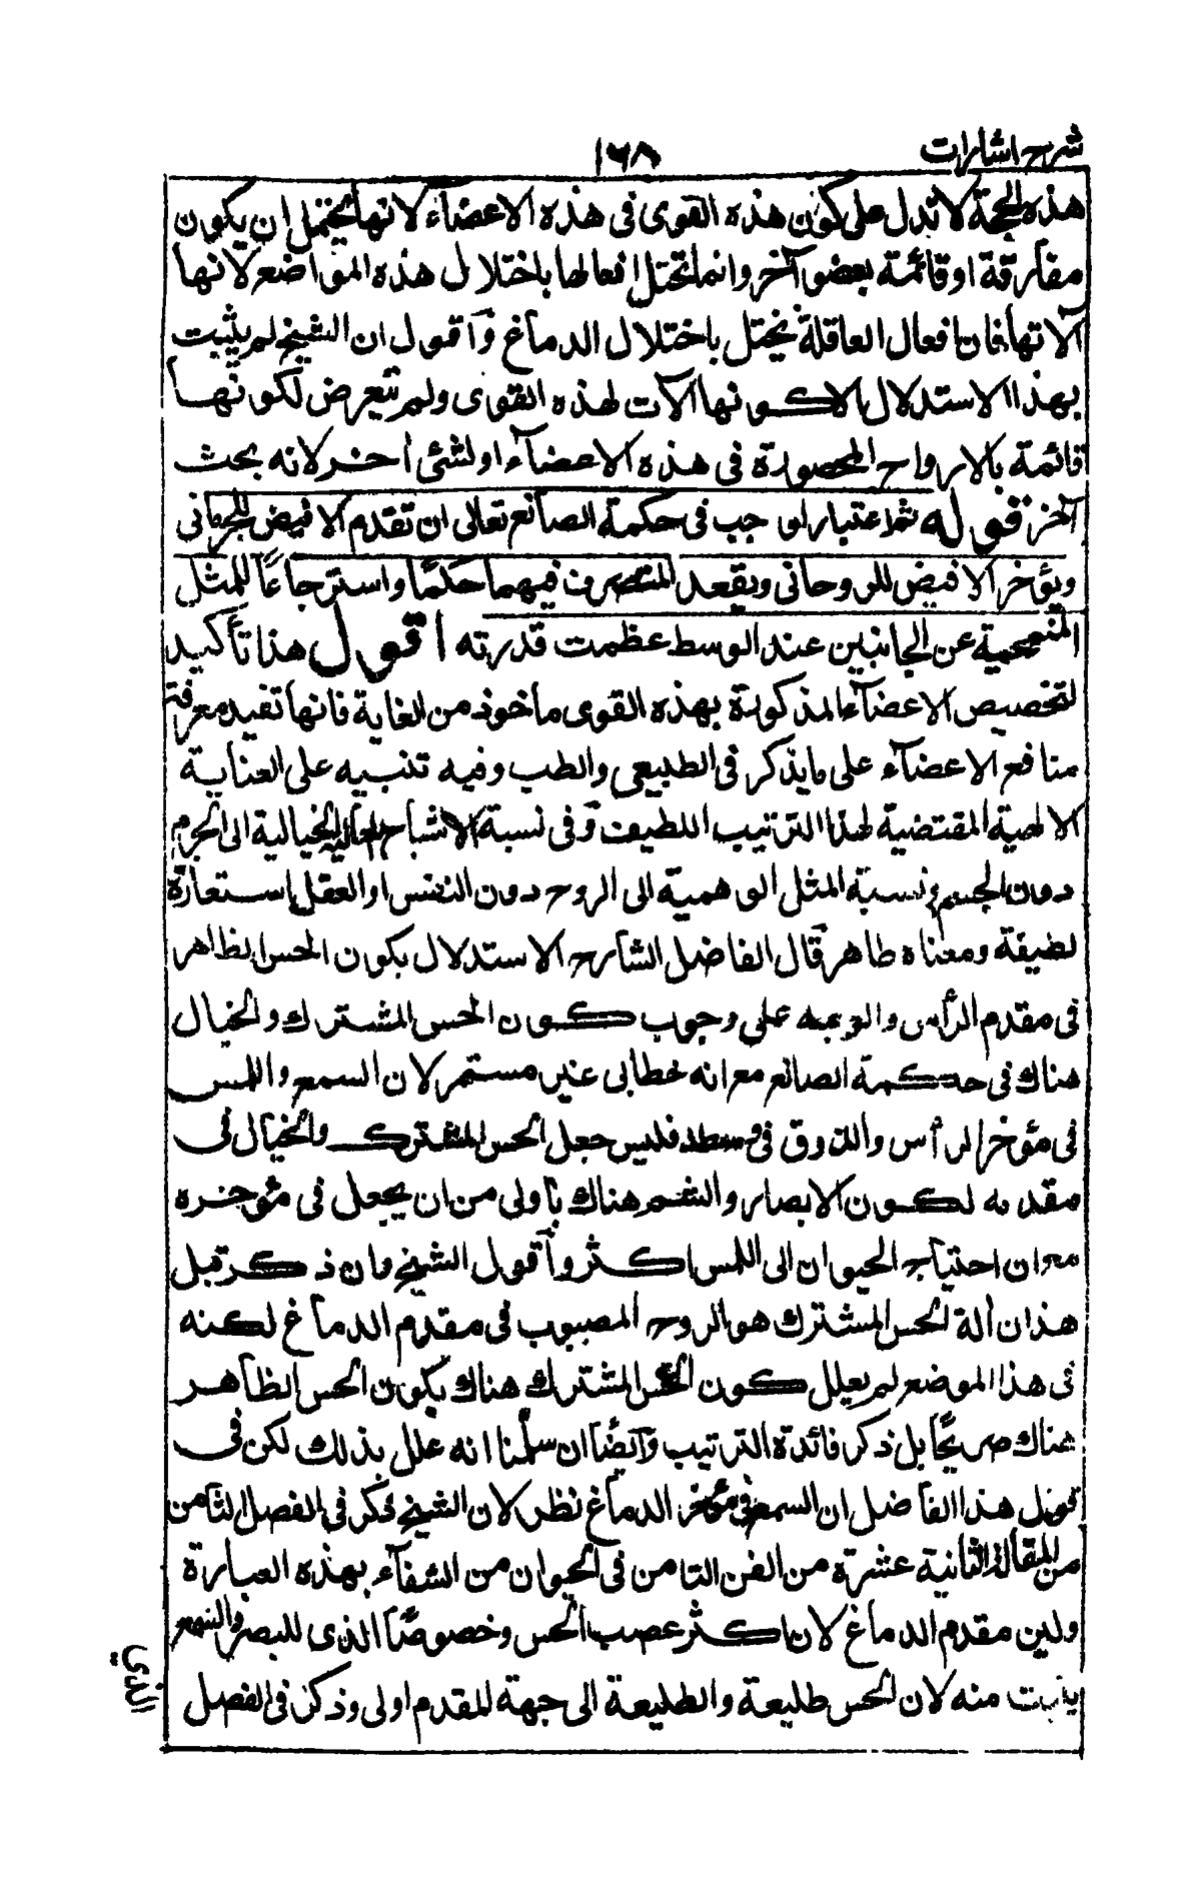 شرح اشارات ١٦٨
هذه الحجة لا تدل على كون هذه القوى فى هذه الاعضاء لانها يحتمل ان يكون
مفارقة او قائمة بعضو آخر وانما تختل افعالها باختلال هذه المواضع لانها
آلاتها فان افعال العاقلة يختل باختلال الدماغ وآقول ان الشيخ لم يثبت
بهذا الاستدلال الا كونها آلات لهذه القوى ولم يتعرض لكونها
قائمة بالارواح المحصورة فى هذه الاعضاء او لشئ آخر لانه بحث
آخر قوله ثم اعتبار لوجب فى حكمة الصانع تعالى ان تقدم الاقيض للجرمانى
ويؤخر الاقيض للروحانى ويقعد المتصرف فيهما حكمًا واسترجاعًا للمثل
المنمحية عن الجانبين عند الوسط عظمت قدرته اقول هذا تأكيد
لتخصيص الاعضاء المذكورة بهذه القوى ماخوذ من الغاية فانها تفيد معرفة
منافع الاعضاء على ما يذكر فى الطبيعى والطب وفيه تنبيه على العناية
الالهية المقتضية لهذا الترتيب اللطيف وفى نسبة الاشباح الخيالية الى الجرم
دون الجسم ونسبة المثل الوهمية الى الروح دون النفس او العقل استعارة
لطيفة ومعناه ظاهر قال الفاضل الشارح الاستدلال بكون الحس الظاهر
فى مقدم الرأس على وجوب كون الحس المشترك والخيال
هناك فى حكمة الصانع مع انه خطابى غير مستمر لان السمع واللمس
فى مؤخر الرأس والذوق فى وسطه فليس جعل الحس المشترك والخيال فى
مقدمه لكون الابصار والشم هناك باولى من ان يجعل فى مؤخره
مع ان احتياج الحيوان الى اللمس اكثر وآقول الشيخ وان ذكر قبل
هذا ان آلة الحس المشترك هو الروح المصبوب فى مقدم الدماغ لكنه
فى هذا الموضع لم يعلل كون الحس المشترك هناك بكون الحس الظاهر
هناك صريحًا بل ذكر فائدة الترتيب وآيضًا ان سلمنا انه علل بذلك لكن فى
قول هذا الفاضل ان السمع فى مؤخر الدماغ نظر لان الشيخ ذكر فى الفصل الثامن
من المقالة الثانية عشرة من الفن الثامن فى الحيوان من الشفاء بهذه العبارة
ولين مقدم الدماغ لان اكثر عصب الحس وخصوصًا الذى للبصر والسمع
ينبت منه لان الحس طليعة والطليعة الى جهة المقدم اولى وذكر فى الفصل
الذى